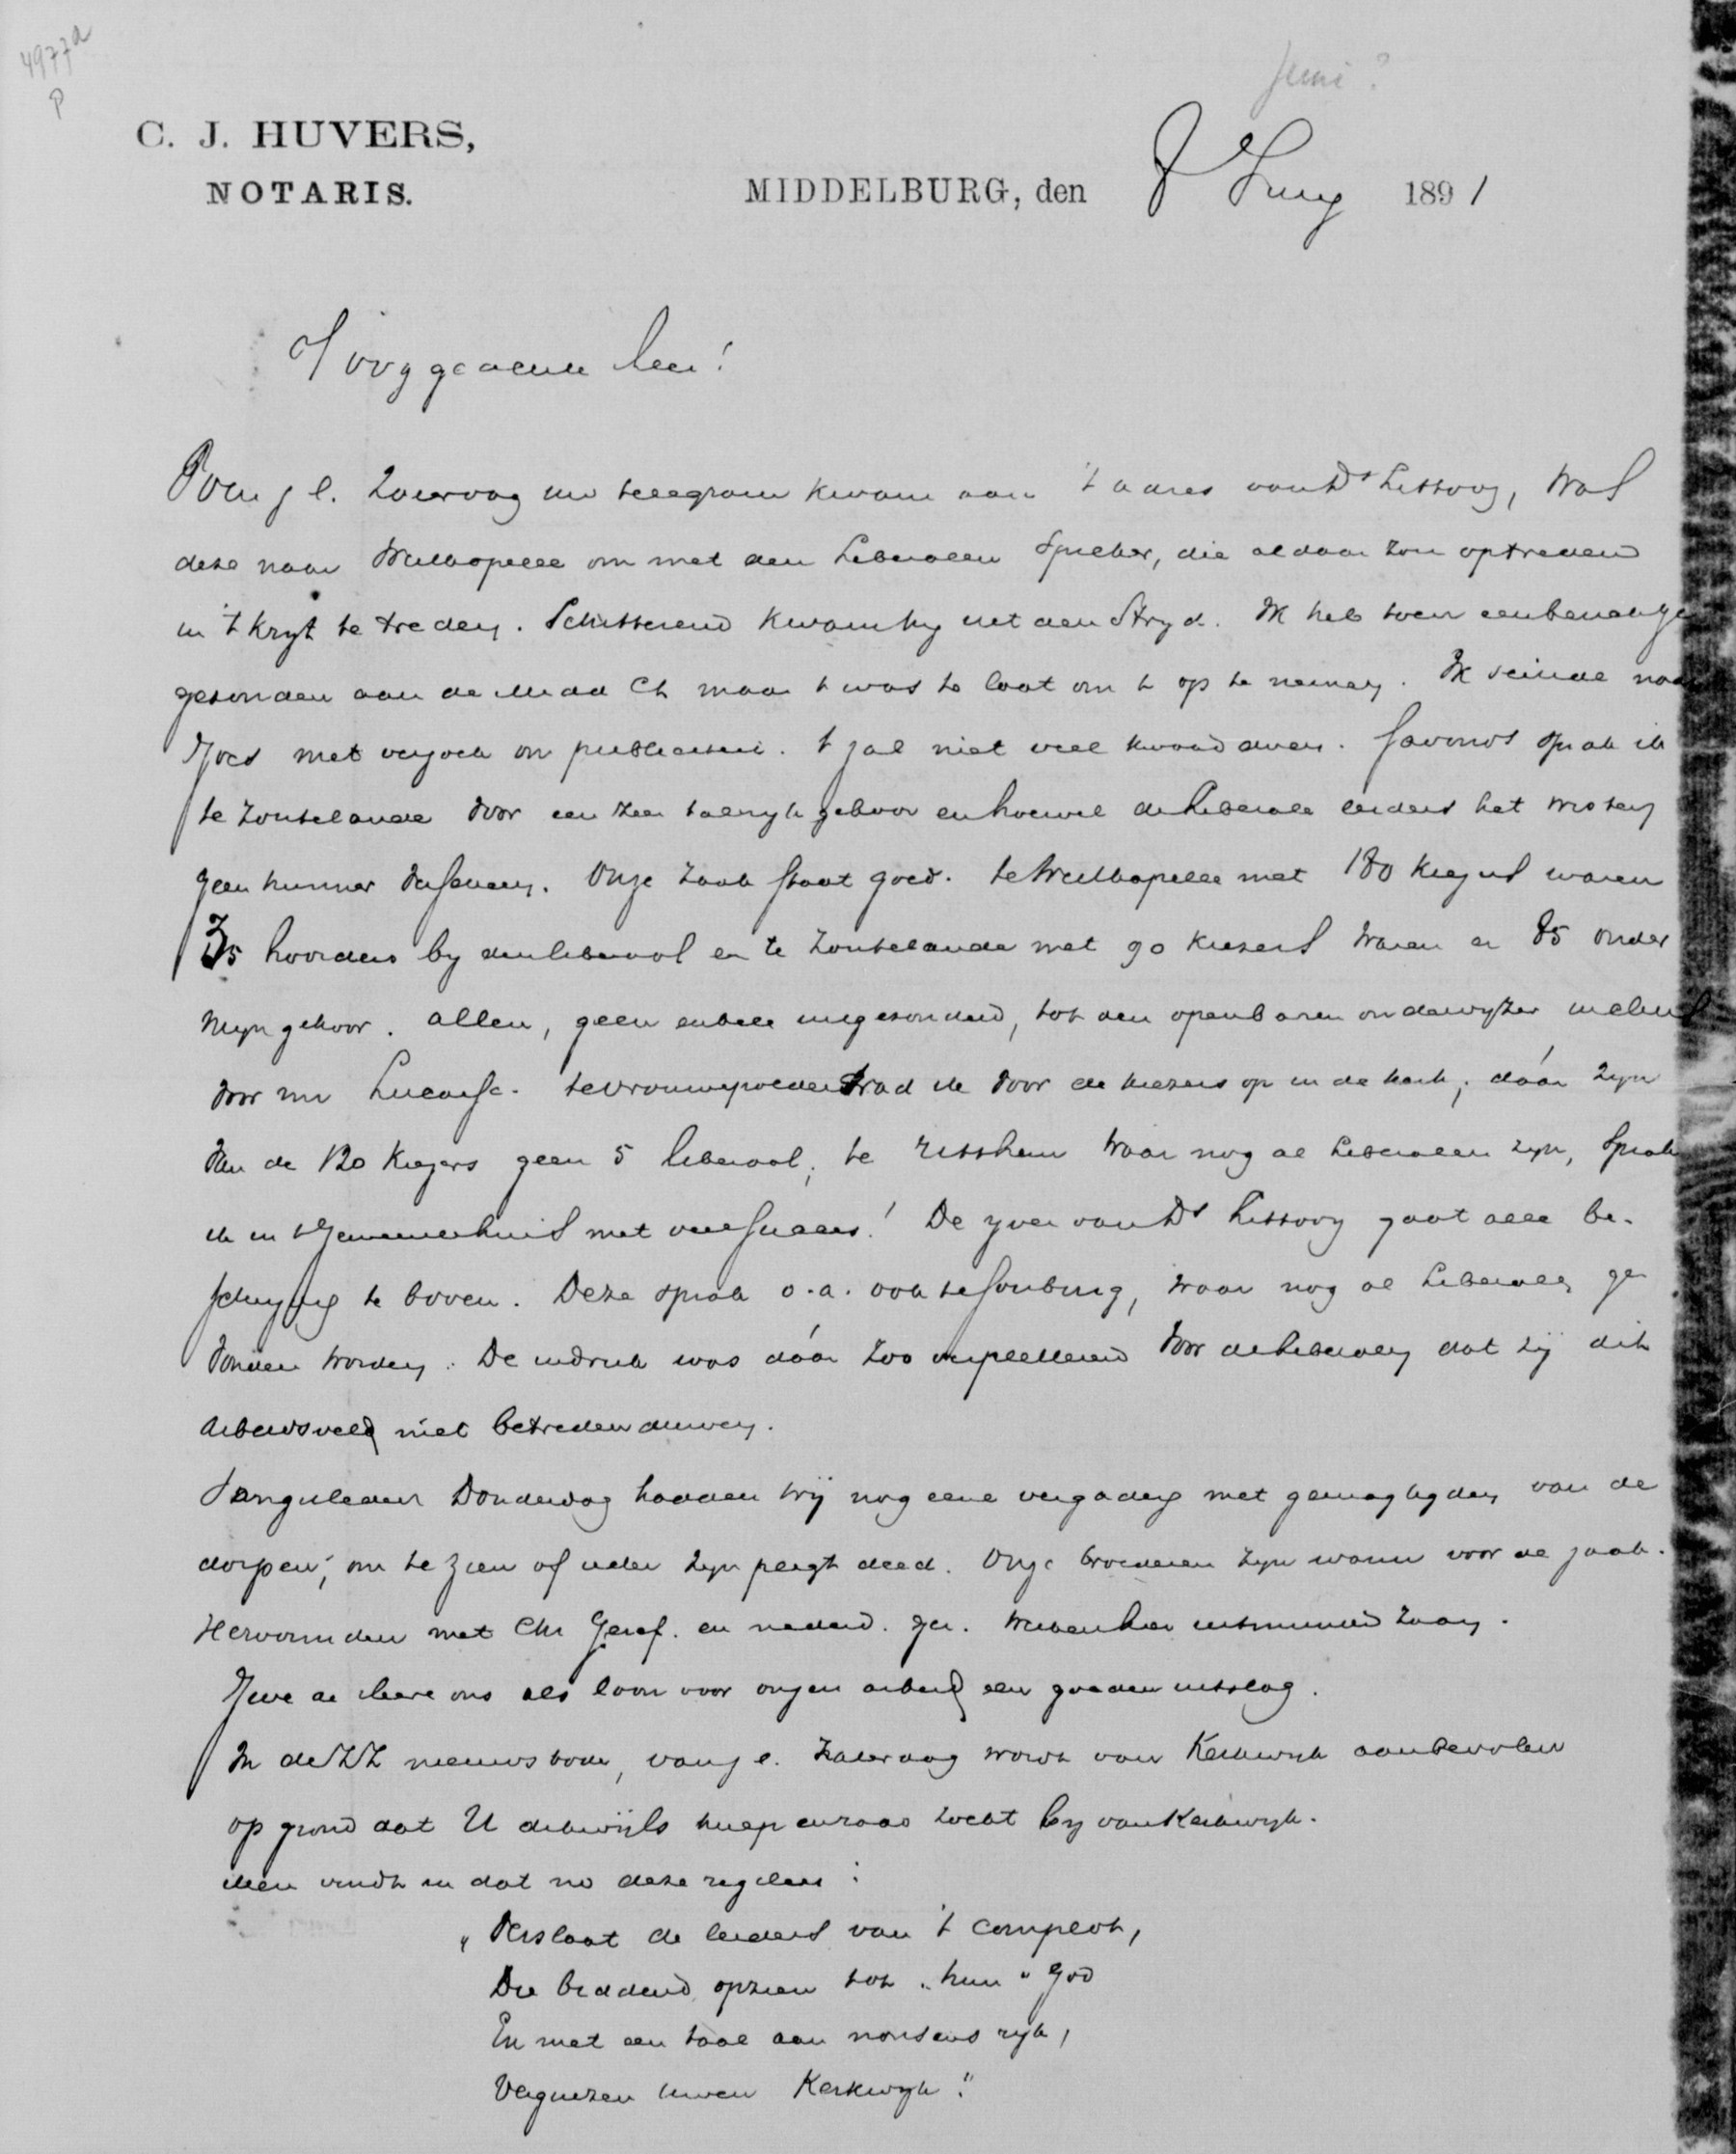 4977a
P
Juni?
C. J. HUVERS,
NOTARIS.
MIDDELBURG, den 8 Juny 1891
Hooggeachte Heer!
Toen j l. Zaterdag uw telegram kwam aan 't adres van Ds Littooy, was
deze naar Westkapelle om met den Liberalen Spreker, die aldaar zou optreden
in 't krijt te treden. Schitterend kwam hy uit den Stryd. Ik heb toen een
gezonden aan de Ct maar t was te laat om t op te nemen. Ik seinde naar
Goes met verzoek om publicatie. t zal niet veel kwaad doen. Savonds sprak ik
te Zoutelande voor een zeer talryk gehoor en hoewel de liberale leiders het wisten
geen hunner verscheen. Onze zaak staat goed. te Westkapelle met 180 kiezers waren
35 hoorders by den liberaal en te Zoutelande met 90 kiezers waren er 85 onder
myn gehoor. allen, geen enkele uitgezonderd, tot den openbaren onderwyzer incluis
voor mr Lucasse. te Vrouwepolder trad ik voor de kiezers op in de kerk; dáár zyn
van de 120 kiezers geen 5 liberaal; te Ritthem waar nog al liberalen zyn, sprak
ik in t Gemeentehuis met veel succes! De yver van Ds Littooy gaat alle be-
schryving te boven. Deze sprak o.a. ook te Souburg, waar nog al Liberalen ge
vonden worden. De indruk was dáár zoo verpletterend voor de liberalen dat zij dit
arbeidsveld niet betreden durven.
Donderdag hadden wij nog eene vergadering met gemagtigden van de
dorpen, om te zien of ieder zyn pligt deed. Onze broederen zyn warm voor de zaak.
Hervormden met Chr Geref. en nederd. ger. werken hier uitmuntend zaam.
Geve de Heere ons als loon voor onzen arbeid een goeden uitslag.
In de ZZ nieuwsbode, van j l. Zaterdag wordt van Kerkwyk aanbevolen
op grond dat U dikwijls hulp en raad zocht by van Kerkwyk.
Men vindt in dat no deze regelen:
„Verslaat de leiders van 't complot,
Die biddend opzien tot „hun" God
En met een taal aan nonsens ryk,
Verguizen uwen Kerkwyk."